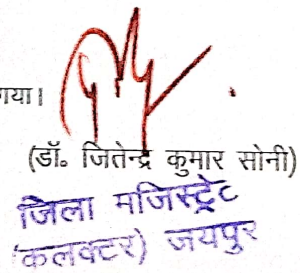 गया।
(डॉ० जितेन्द्र कुमार सोनी)
जिला मजिस्ट्रेट
(कलक्टर) जयपुर